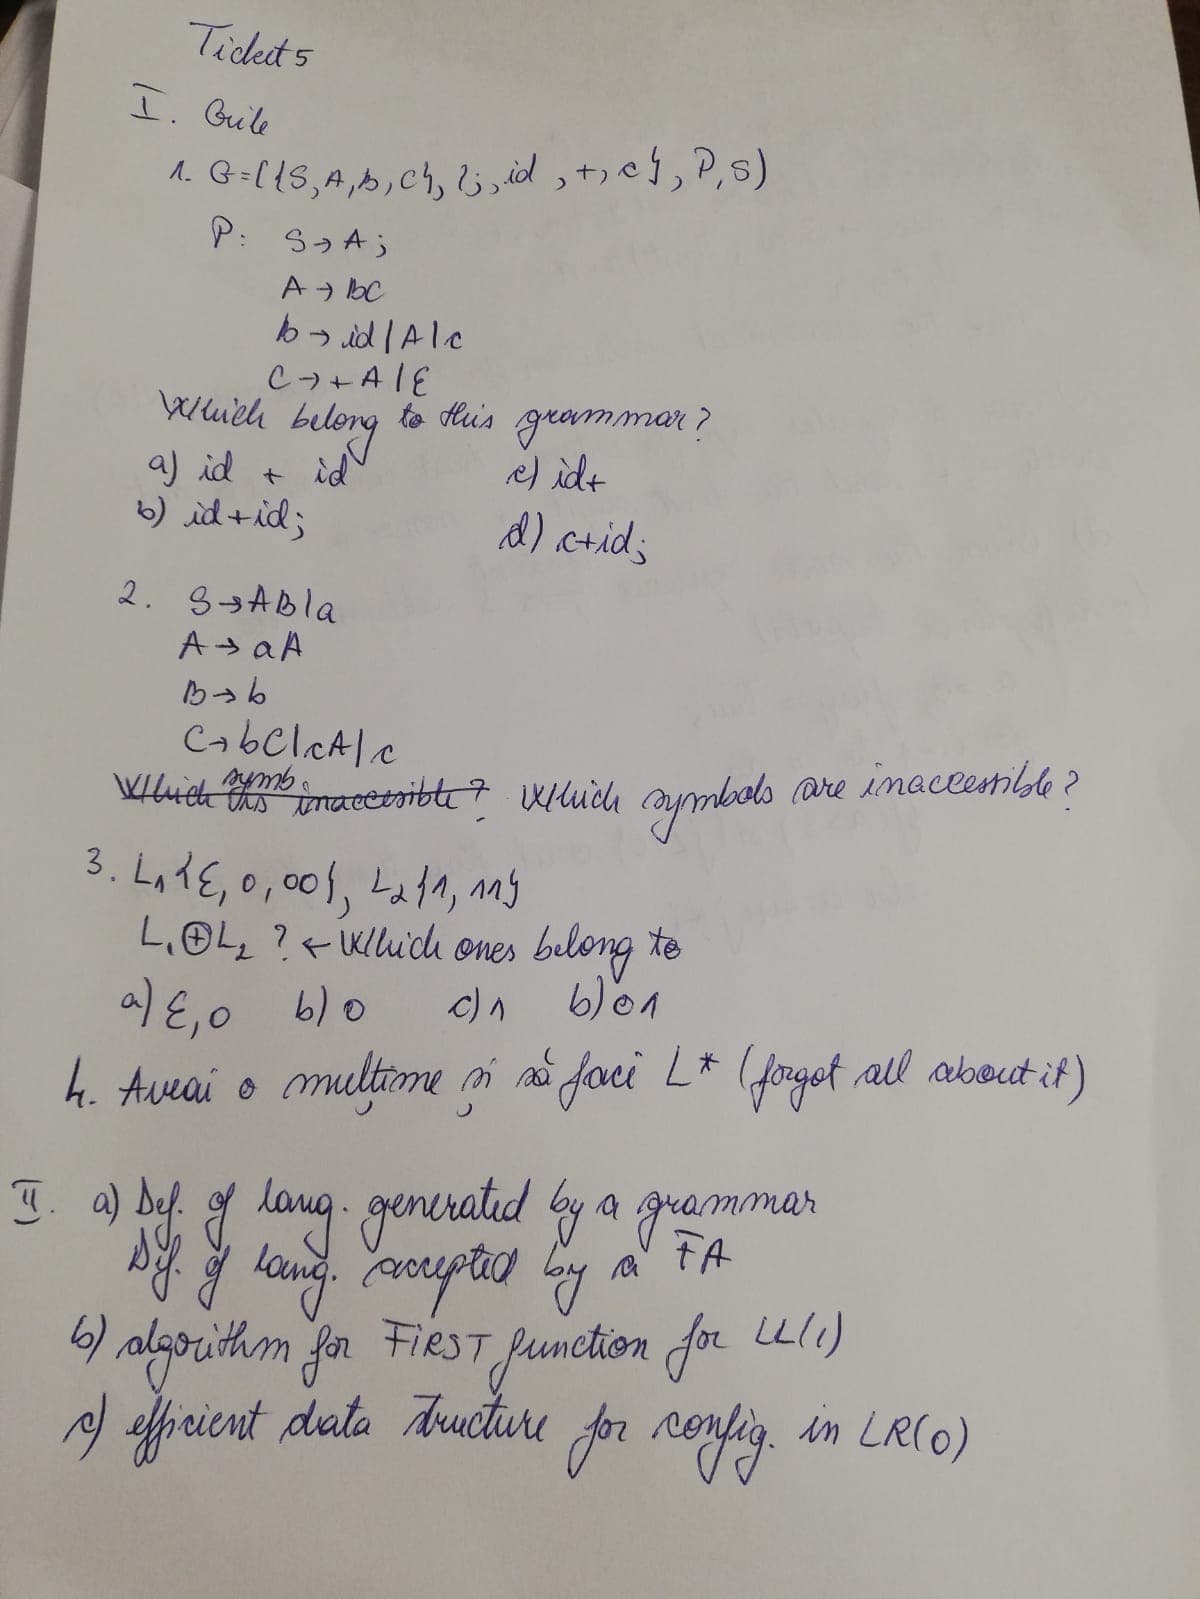 Ticket 5
I. Grile
1. G=({S,A,B,C}, {;,id,+,c}, P,S)
P: S→A;
A→BC
B→id|A|c
C→+A|ε
Which belong to this grammar?
a) id + id c) id+
b) id+id; d) c+id;
2. S→AB|a
A→aA
B→b
C→bC|cA|c
Which this symb inaccesible? Which symbols are inaccessible?
3. L₁{ε, 0, 00}, L₂{1, 11}
L₁⊕L₂ ? ← Which ones belong to
a) ε,0 b) 0 c) 1 b) 01
4. Aveai o mulțime și să faci L* (forgot all about it)
II. a) Def. of lang. generated by a grammar
Def. of lang. accepted by a FA
b) algorithm for FIRST function for LL(1)
c) efficient data structure for config. in LR(0)